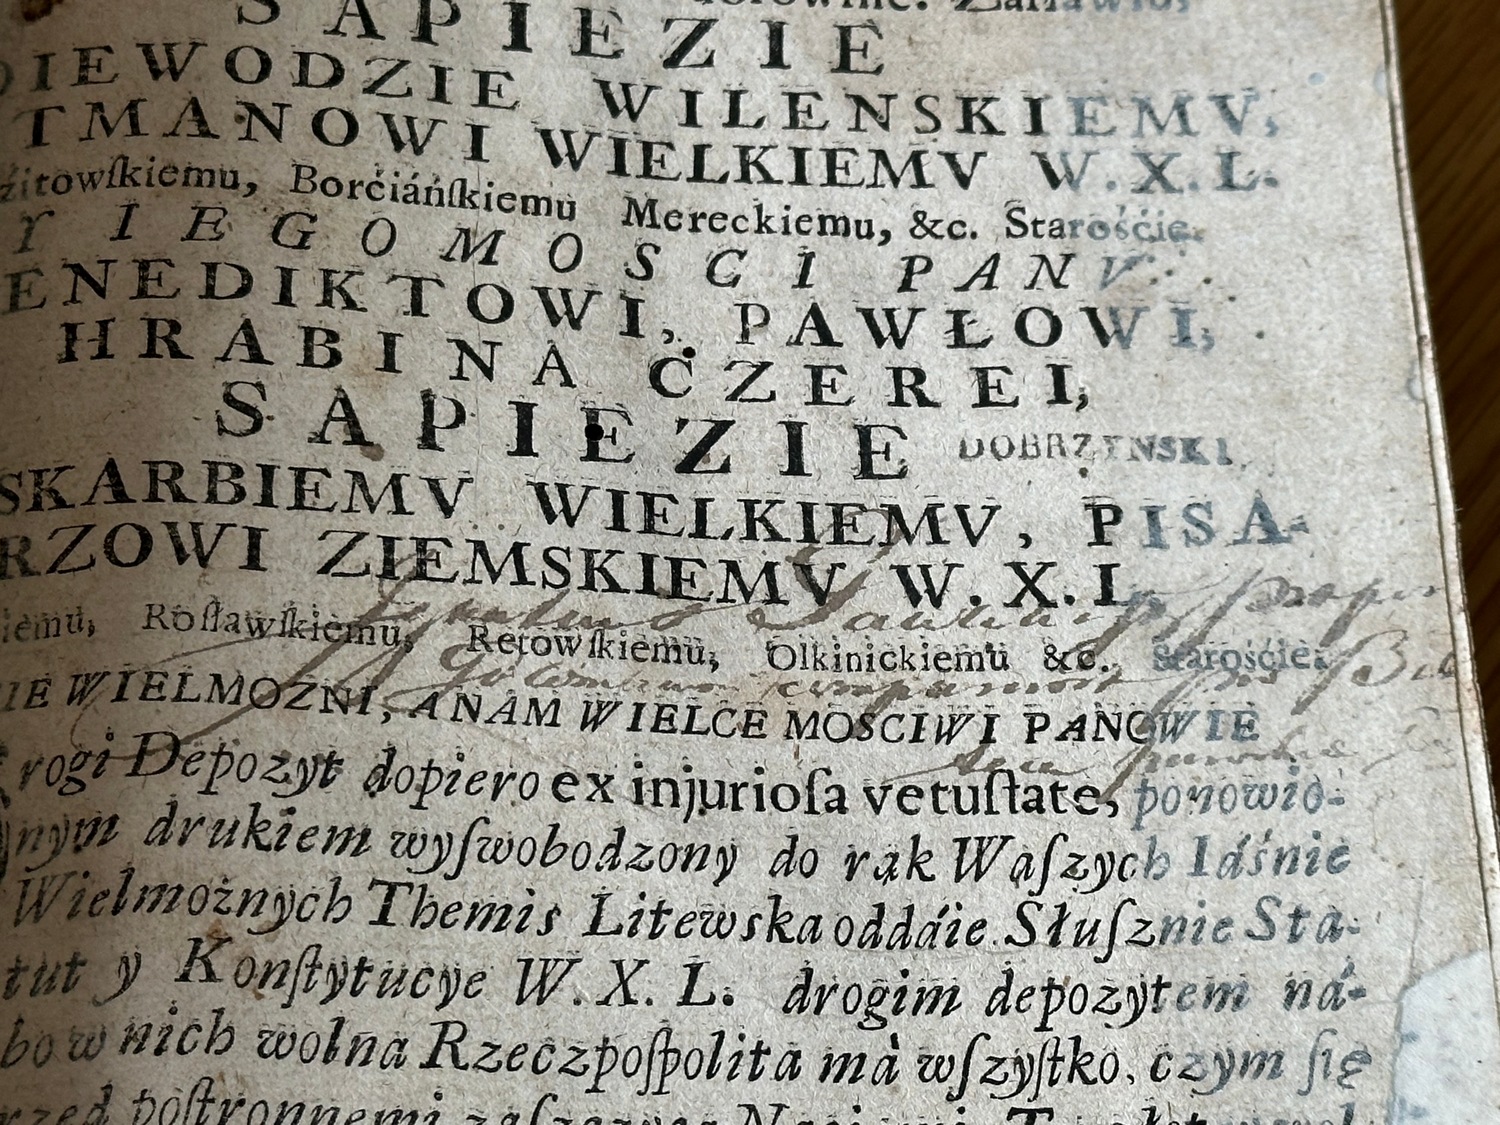 SAPIEZIE
DIEWODZIE WILENSKIEMV,
TMANOWI WIELKIEMV W.X.L.
źitowſkiemu, Borćiáńſkiemu Mereckiemu, &c. Starośćie.
Y IEGOMOSCI PANV
ENEDIKTOWI, PAWŁOWI,
HRABI NA CZEREI,
SAPIEZIE DOBRZYNSKI
SKARBIEMV WIELKIEMV, PISA-
RZOWI ZIEMSKIEMV W.X.L.
iemu, Rosławſkiemu, Retowſkiemu, Olkinickiemu &c. Starośćie.
IE WIELMOZNI, A NAM WIELCE MOSCIWI PANOWIE
rogi Depozyt dopiero ex injurioſa vetuſtate, ponowio-
nym drukiem wyſwobodzony do rąk Waſzych Iáśnie
Wielmożnych Themis Litewska oddáie. Słuſznie Sta-
tut y Konſtytucye W.X.L. drogim depozytem ná-
bo w nich wolna Rzeczpoſpolita má wſzyſtko, czym ſię
rzed poſtronnemi